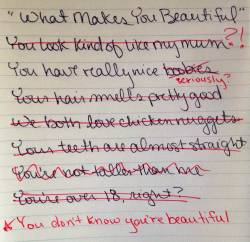 "What Makes You Beautiful"
You look kind of like my mum ?!
You have really nice boobies seriously?
Your hair smells pretty good
We both love chicken nuggets
Your teeth are almost straight
You're not taller than me
You're over 18, right?
* You don't know you're beautiful